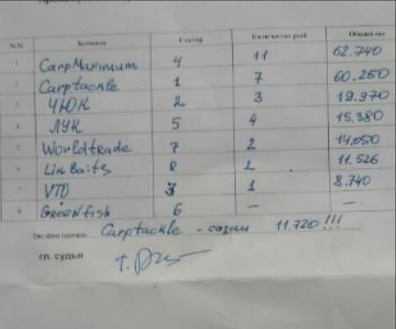 №№ Команда Сектор Количество рыб Общий вес
1 CarpMaximum 4 11 62.740
2 Carptackle 1 7 60.250
3 ЧЮК 2 3 19.970
4 ЛУК 5 4 15.380
5 Worldtrade 7 2 14.050
6 Lin Baits 8 2 11.526
7 VTO 3 1 8.740
8 Greenfish 6 — —
Carptackle - сазан 11.720 !!!
гл. судья